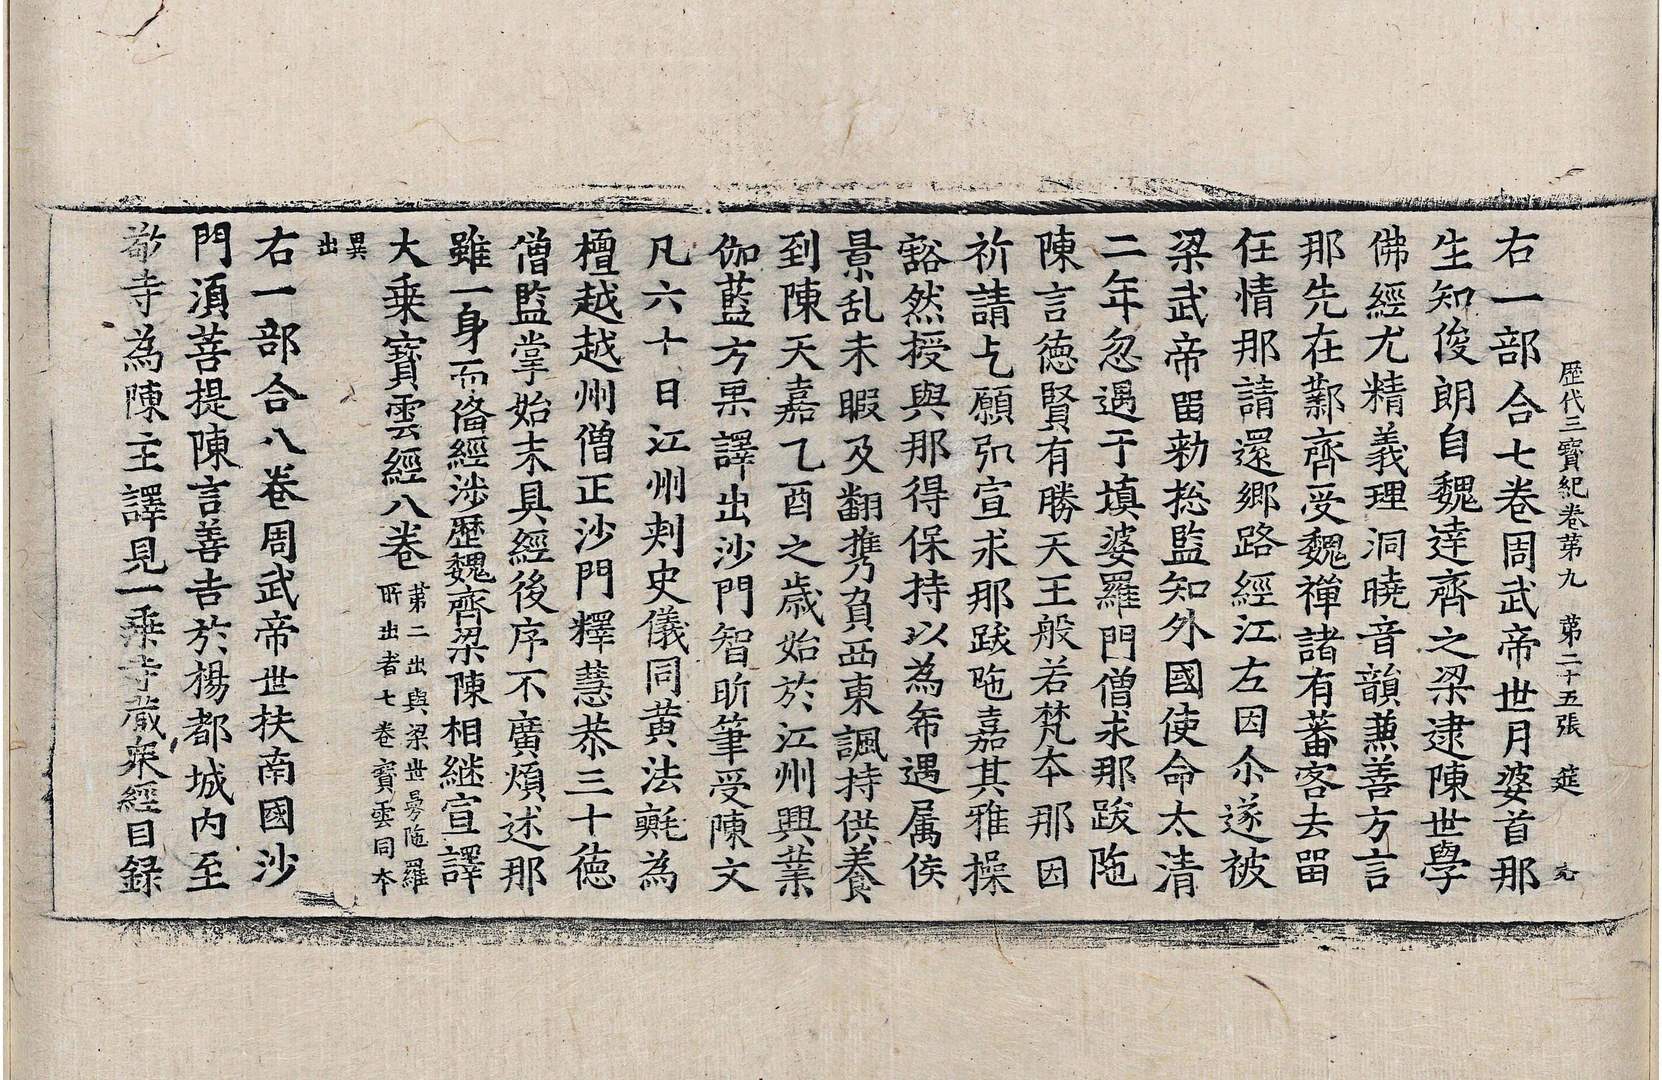 歷代三寶紀卷第九 第二十五張 筵
右一部合七卷周武帝世月婆首那
生知俊朗自魏達齊之梁逮陳世學
佛經尤精義理洞曉音韻兼善方言
那先在鄴齊受魏禪諸有蕃客去留
任情那請還鄉路經江左因尒遂被
梁武帝留勑捴監知外國使命太清
二年忽遇于填婆羅門僧求那跋陁
陳言德賢有勝天王般若梵本那因
祈請乞願弘宣求那跋陁嘉其雅操
豁然授與那得保持以為希遇属侯
景乱未暇及翻攜負西東諷持供養
到陳天嘉乙酉之歲始於江州興業
伽藍方果譯出沙門智昕筆受陳文
凡六十日江州刺史儀同黄法𣰰為
檀越越州僧正沙門釋慧恭三十德
僧監掌始末具經後序不廣煩述那
雖一身而俻經涉歷魏齊梁陳相継宣譯
大乗寶雲經八卷 第二出與梁世曼陁羅
所出者七卷寶雲同本
異
出
右一部合八卷周武帝世扶南國沙
門湏菩提陳言善吉於楊都城內至
敬寺為陳主譯見一乗寺藏衆經目録